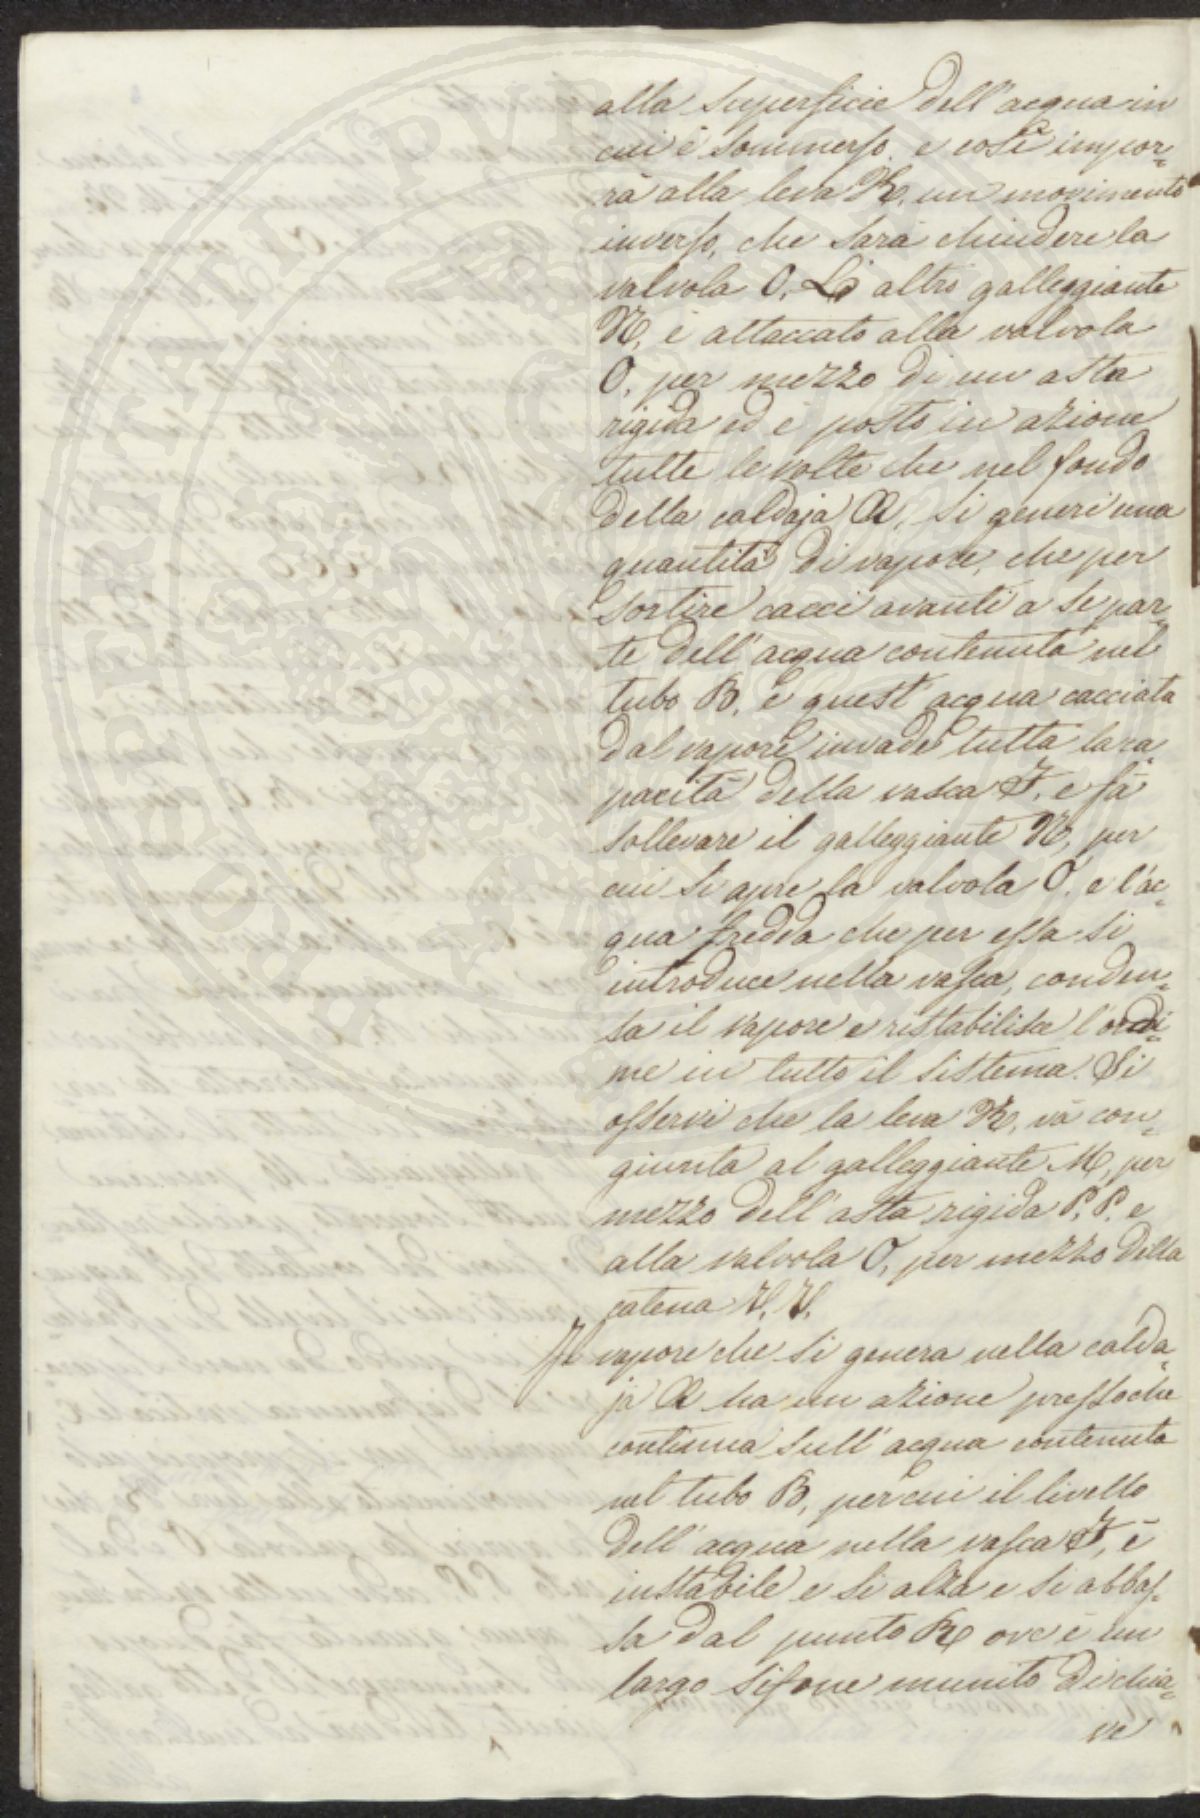 alla superficie dell'acqua in
cui è sommerso, e così impor=
rà alla leva R, un movimento
inverso, che farà chiudere la
valvola O. Lo altro galleggiante
N, è attaccato alla valvola
O, per mezzo di un asta
rigida ed è posto in azione
tutte le volte che nel fondo
della caldaja A, si generi una
quantità di vapore, che per
sortire cacci avanti a se par=
te dell'acqua contenuta nel
tubo B, e quest'acqua cacciata
dal vapore invade tutta la ca=
pacità della vasca F, e fà
sollevare il galleggiante N, per
cui si apre la valvola O, e l'ac=
qua fredda che per essa si
introduce nella vasca, conden=
sa il vapore e ristabilisce l'ordi=
ne in tutto il sistema. Si
osservi che la leva R, và con=
giunta al galleggiante M, per
mezzo dell'asta rigida P, P. e
alla valvola O, per mezzo della
catena V, V.
Il vapore che si genera nella calda=
ja A ha un azione pressoche
continua sull'acqua contenuta
nel tubo B, per cui il livello
dell'acqua nella vasca F, è
instabile e si alza e si abbas=
sa dal punto R ove è un
largo sifone munito di chia=
ve
OSPITALITATI PVBL